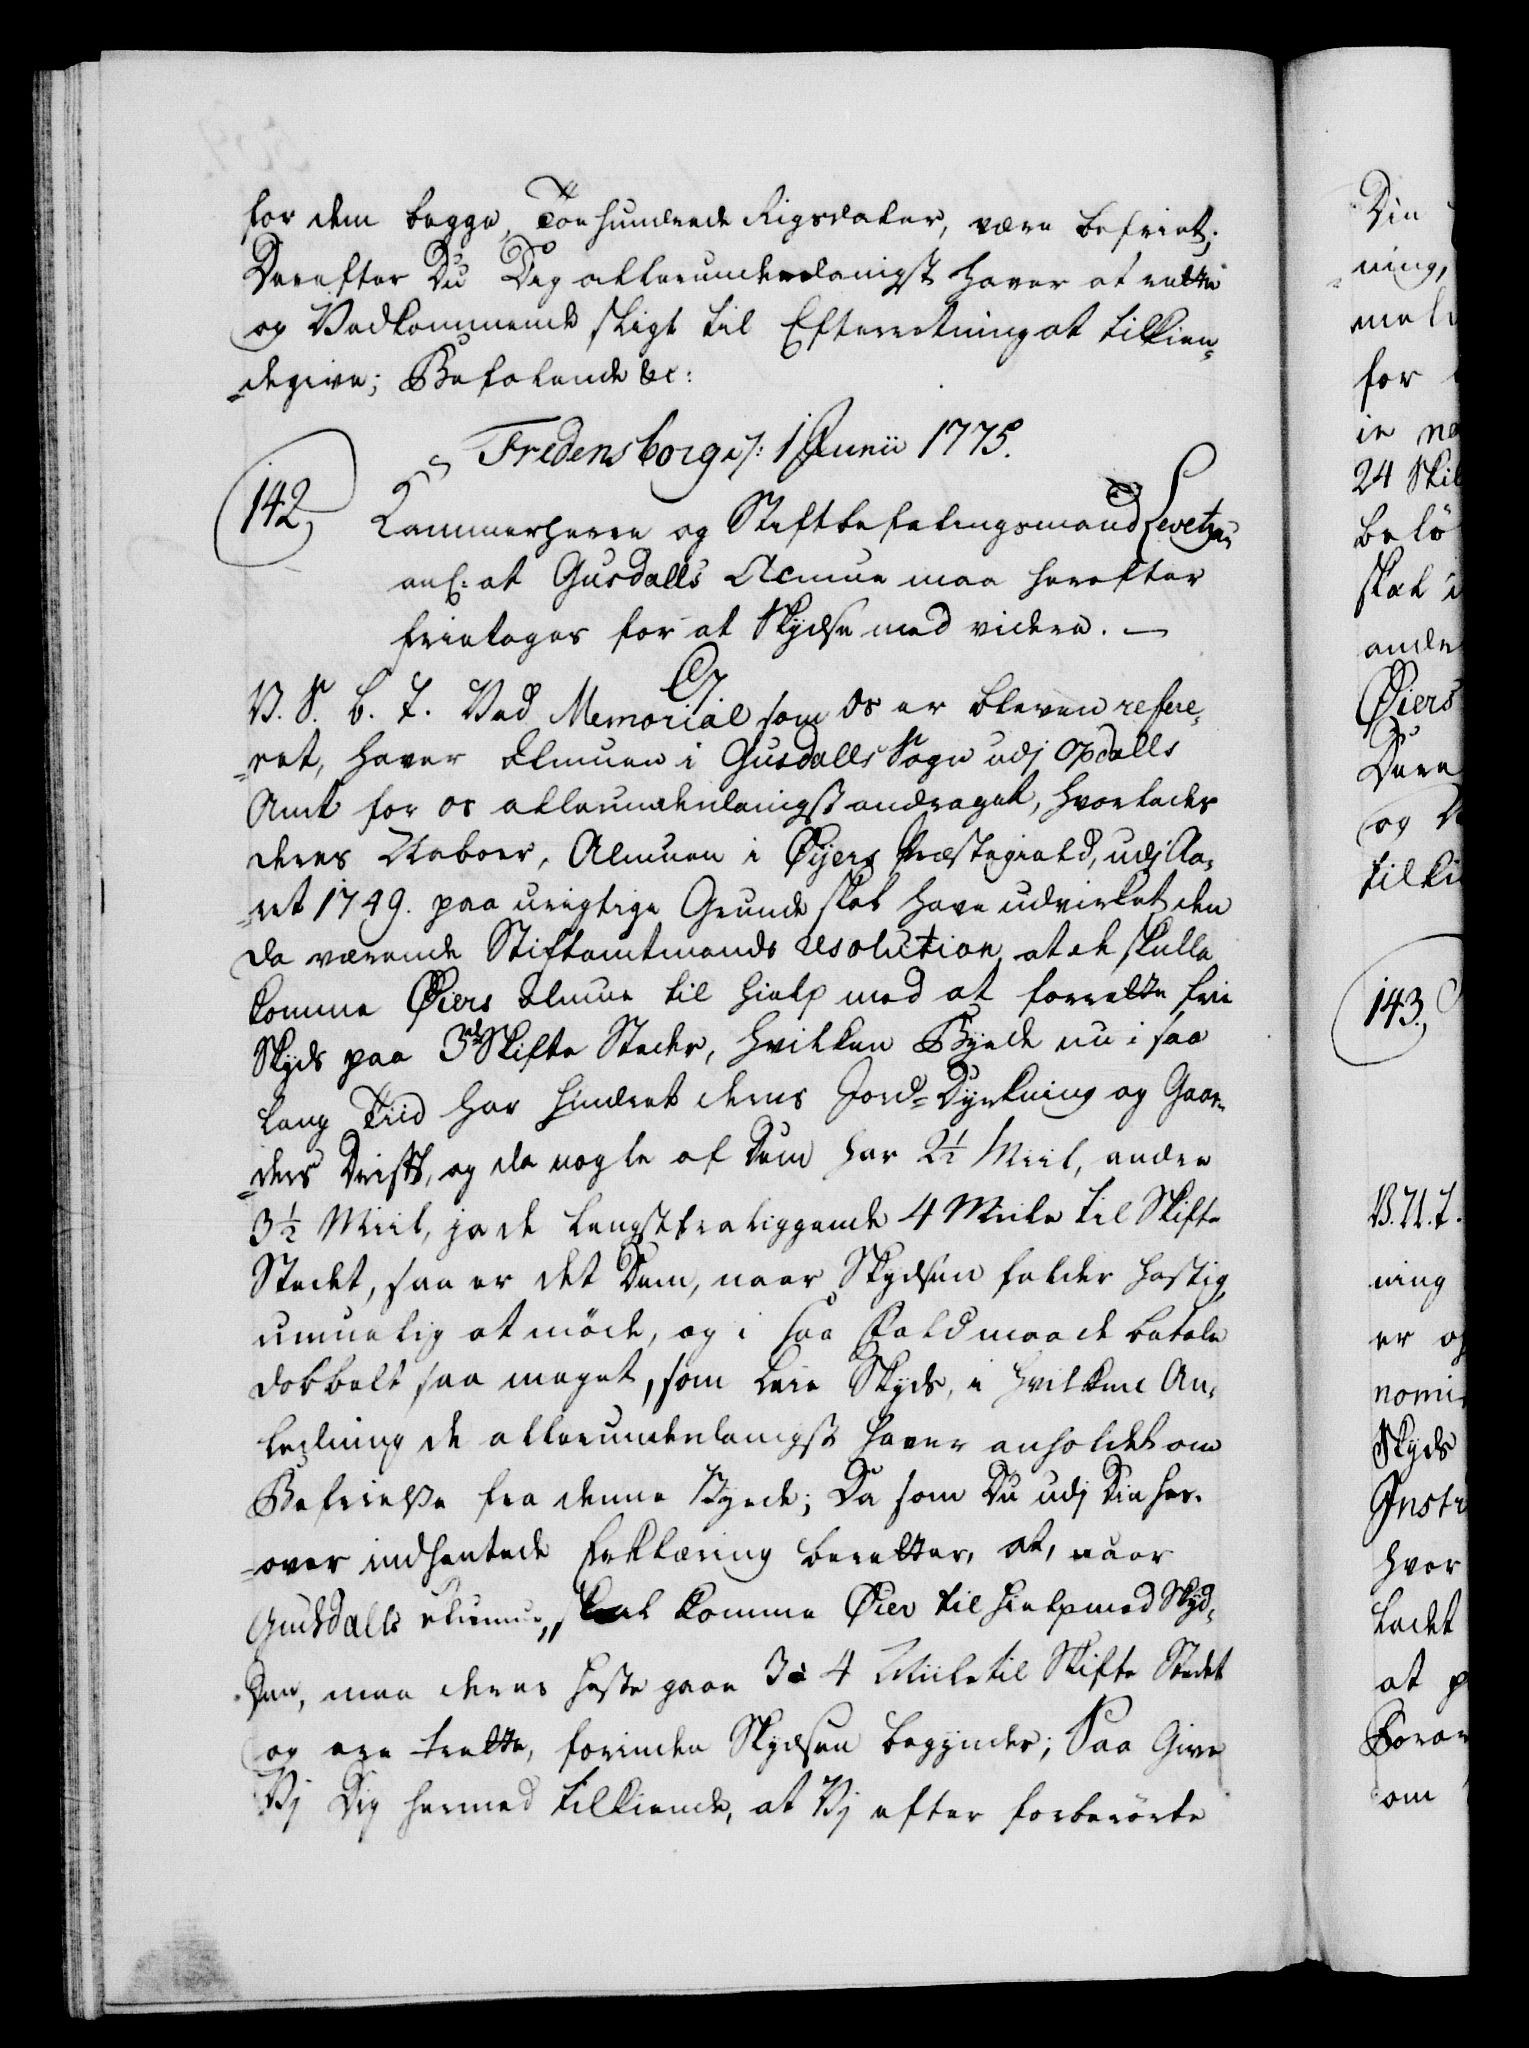 for dem begge, Toe Hundrede Rigsdaler, være befriet;
Derefter Du Dig allerunderdanigst haver at rette
og Vedkommende sligt til Efterretning at tilkien-
degive; Befalende &c:
Fredensborg /: 1 Junii 1775.
142, Kammerherre og Stiftbefalingsmand Levetzau
anl: at Gusdalls Almue maa herefter
fritages for at Skydse med videre. —
V. S. B. T. Ved Memorial som os er bleven refere-
ret, haver Almuen i Gusdalls Sogn udj Opdalls
Amt for os allerunderdanigst andraget, hvorledes
deres Naboer, Almuen i Øyers Præstegield, udj Aa-
ret 1749. paa urigtige Grunde skal have udvirket den
da værende Stiftamtmands resolution, at de skulle
komme Øiers Almue til Hielp med at forrette frie
Skyds paa 3de Skifte Steder, hvilken Byrde nu i saa
lang Tiid har hindret deres Jord-Dyrkning og Gaar-
ders Drift, og da nogle af Dem har 2½ Miil, andre
3½ Miil, ja de længst fraliggende 4 Miile til Skifte
Stedet, saa er det Dem, naar Skydsen falder hastig,
umuelig at møde, og i saa Fald maa de betale
dobbelt saa meget, som leie Skyds, i hvilken An-
ledning de allerunderdanigst haver anholdet om
Befrielse fra denne Byrde; Da som Du udj Din her-
over indhentede Erklæring beretter, at, naar
Gusdalls Almue, skal komme Øier til Hielp med Skyd-
sen, maa deres Heste gaae 3 à 4 Miile til Skifte Stedet
og ere trætte, forinden Skydsen begynder; Saa Give
Vj Dig hermed tilkiende, at Vj efter forberørte
Din
ning,
for
24 Skil
belø
skal i
ande
Øiers
Dere
og V
tilki
143.,
V. N. T.
ning
er og
nomi
Skyds
Instr
hvor
ladet
at p
Foror
om